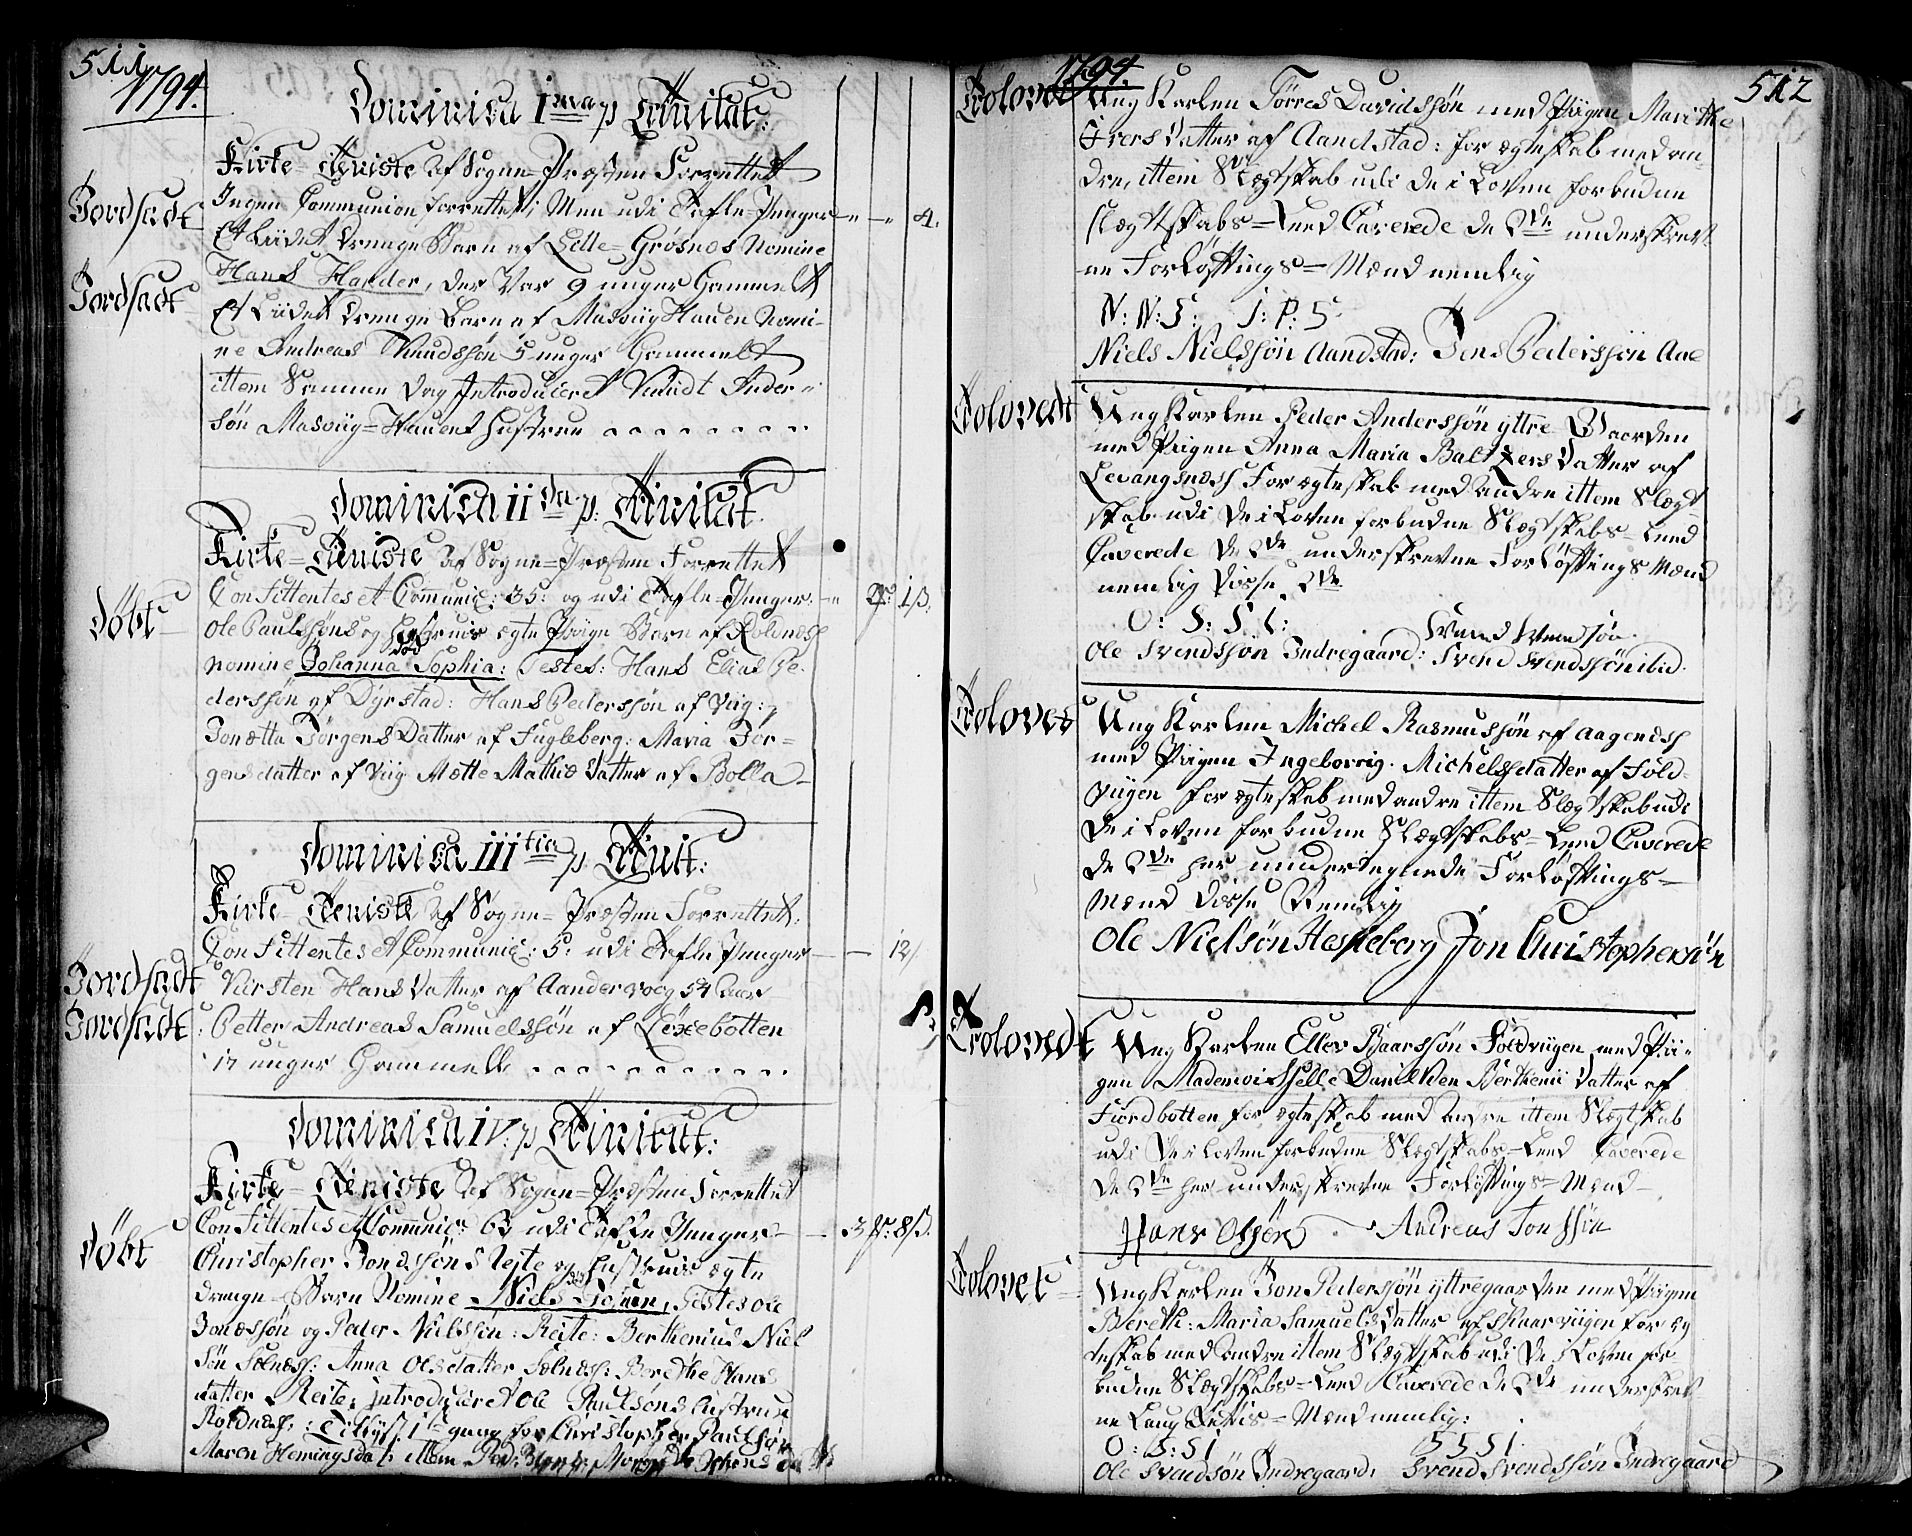 511
1794.
Dominica Ima p Trinitat:
Kirke-Tieniste af Sogne-Præsten Forrettet
Jordfadt
Ingen Communion forrettet; Men udi Tafle-Penger - " - " 4.
Et Liidet Drenge Barn af Lille-Grøsnes Nomine
Hans Harder, der Var 9 uger Gammelt
Jordfadt
Et Liidet Drenge Barn af Masviig Hauen Nomi-
ne Andreas Knudssøn 5 uger Gammelt
ittem Samme Dag Introduceret Knudt Ander-
søn Masviig-Hauens Hustrue
Dominica II da p: Trinitat.
Kirke-Tieniste af Sogne-Præsten Forrettet
Confitentes et Communic: 35: og udi Tafle-Penger. - " 1 ß.
døbt
Ole Paulssøns og Hustrues ægte Piige Barn af Rolnæss
nomine Johanna Sophia: Testes: Hans Elias Pe-
død
derssøn af Dyrstad: Hans Pederssøn af Viig:
Jonætta Jørgens Datter af Fugleberg: Maria Jør-
gensdatter af Viig Mætte Mathiæ Datter af Bolla
Dominica III tia p Trinit:
Kirke-Tieniste af Sogne-Præsten Forrettet.
Confitentes et Communic: 5: udi Tafle Penger - - 12/
Jordfadt
Kirsten Hans Datter af Aandervaag 54 Aar
Jordfadt
: Petter Andreas Samuelssøn af Løxebotten
17 uger Gammell
Dominica IV: p Trinitat:
Kirke-Tieniste af Sogne-Præsten Forrettet
Confitentes et Communic: 63 udi Tafle Penger - - 3 8 ß.
døbt
Christopher Jonssøns Rejte og Hustrues ægte
drenge-Barn Nomine Niels , Testes Ole
Jonessøn og Peder Nielssøn: Reite: Berthenius Niel
søn Selness: Anna Olsdatter Selness: Berethe Hans
datter Reite; introduceret Ole Paulsøns Hustrue
Rolnæss: Tillyst 1te gang for Christopher Paulsøn
Maren Hemingsdat: ittem Ped:
1794.
512
Trolovet
Ung Karlen Tørres Davidssøn med Piigen Marithe
Ivers Datter af Aandstad: for ægteskab med an-
dre, ittem Slægtskab udi de i Loven forbudne
slægtskabs-Leed Caverede de 2de underskrevt
ne Forløftnings-Mænd nemlig
N: N: S: J: P: S
Niels Nielssøn Aandstad: Jens Pederssøn Aae
Trolovedt
Ung Karlen Peder Anderssøn yttre Gaarden
med Piigen Anna Maria Baltzers Datter af
Levangsness For ægteskab med andre ittem Slægt
skab udi de i Loven forbudne Slægtskabs-Leed
Caverede de 2de underskrevne Forløftnings Mænd
nemlig disse 2de
O: S: S L: Svend Svendsøn.
Ole Svendssøn Indregaard: Svend Svendssøn ibid.
Trolovet
Ung Karlen Michel Rasmussøn af Aageness
med Piigen Ingeborrig Michelsdatter af Fold-
viigen for ægteskab med andre ittem Slægtskab udi
de i Loven forbudne Slægtskabs-Leed Caverede
de 2de her undertegnede Forløftnings-
Mænd disse Nemlig
Ole Nielsøn Hesleberg Jon Christophersøn
Trolovedt
Ung Karlen Ellev Baarssøn Foldviigen med Pii-
gen Mademoisselle Danilken Berthenii Datter af
Fiordbotten for ægteskab med andre ittem Slægtskab
udi De i Loven forbudne Slægtskabs-Leed Caverede
de 2de her underskrevne Forløftnings-Mænd
Hans Olsen Andreas Jonssøn
Trolovet
Ung Karlen Jon Pederssøn yttregaarden med Piigen
Bereth: Maria Samuels Datter af Skaarviigen for æg
teskab med andre ittem Slægtskab udi De i Loven for-
budne Slægtskabs-Leed Caverede de 2de underskrev-
ne Laug -Mænd nemlig:
O: S: S I S S S I
Ole Svendsøn Indregaard: Svend Svendssøn Indregaard